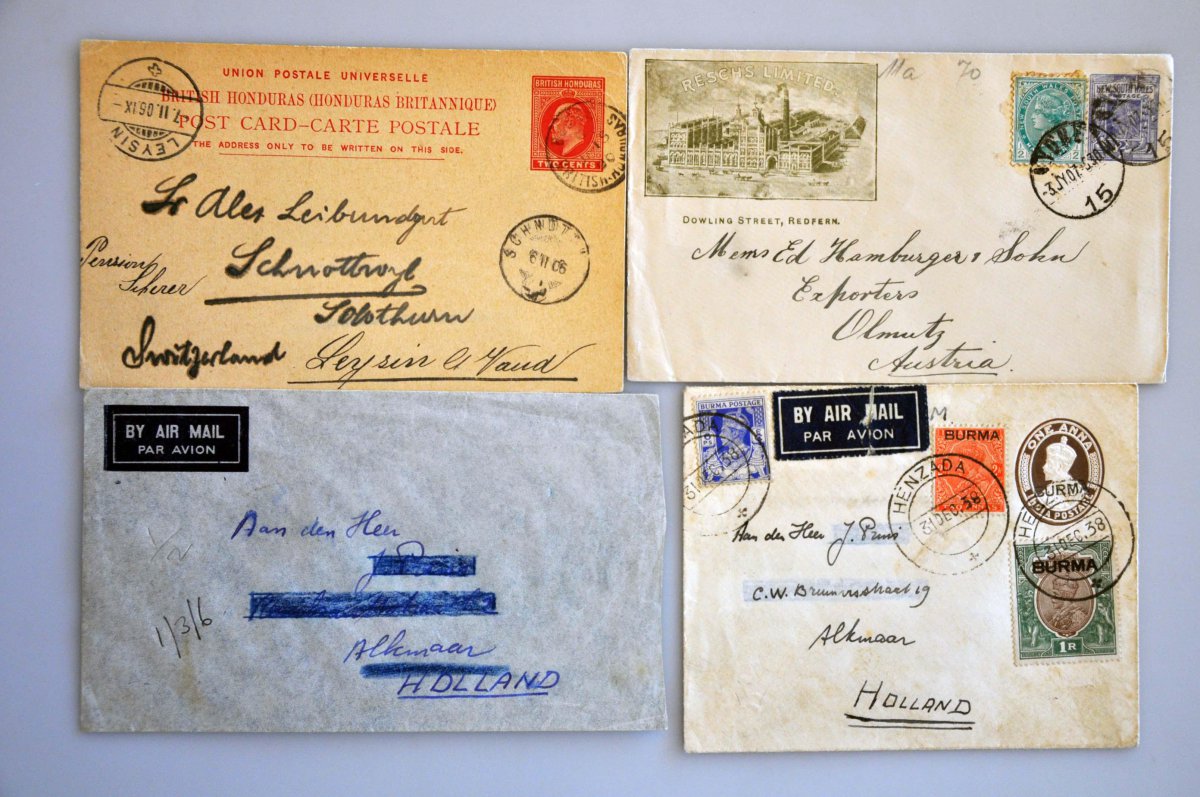 UNION POSTALE UNIVERSELLE
BRITISH HONDURAS (HONDURAS BRITANNIQUE)
POST CARD–CARTE POSTALE
THE ADDRESS ONLY TO BE WRITTEN ON THIS SIDE.
BRITISH HONDURAS
TWO CENTS
LEYSIN
Sr Alex Leibundgut
Pension
Scherer
Solothurn
Switzerland
Leysin
Vaud
RESCHS LIMITED.
DOWLING STREET, REDFERN.
11a 70
NEW SOUTH WALES
3 JY 07
15
15
Mems Ed Hamburger & Sohn
Exporters
Olmutz
Austria.
BY AIR MAIL
PAR AVION
Aan den Heer
Alkmaar
HOLLAND
1/2
1/3/6
BURMA POSTAGE
BY AIR MAIL
PAR AVION
BURMA
ONE ANNA
BURMA
POSTAGE
HENZADA
31 DEC. 38
BURMA
1R
Aan den Heer J. Prins
Alkmaar
HOLLAND